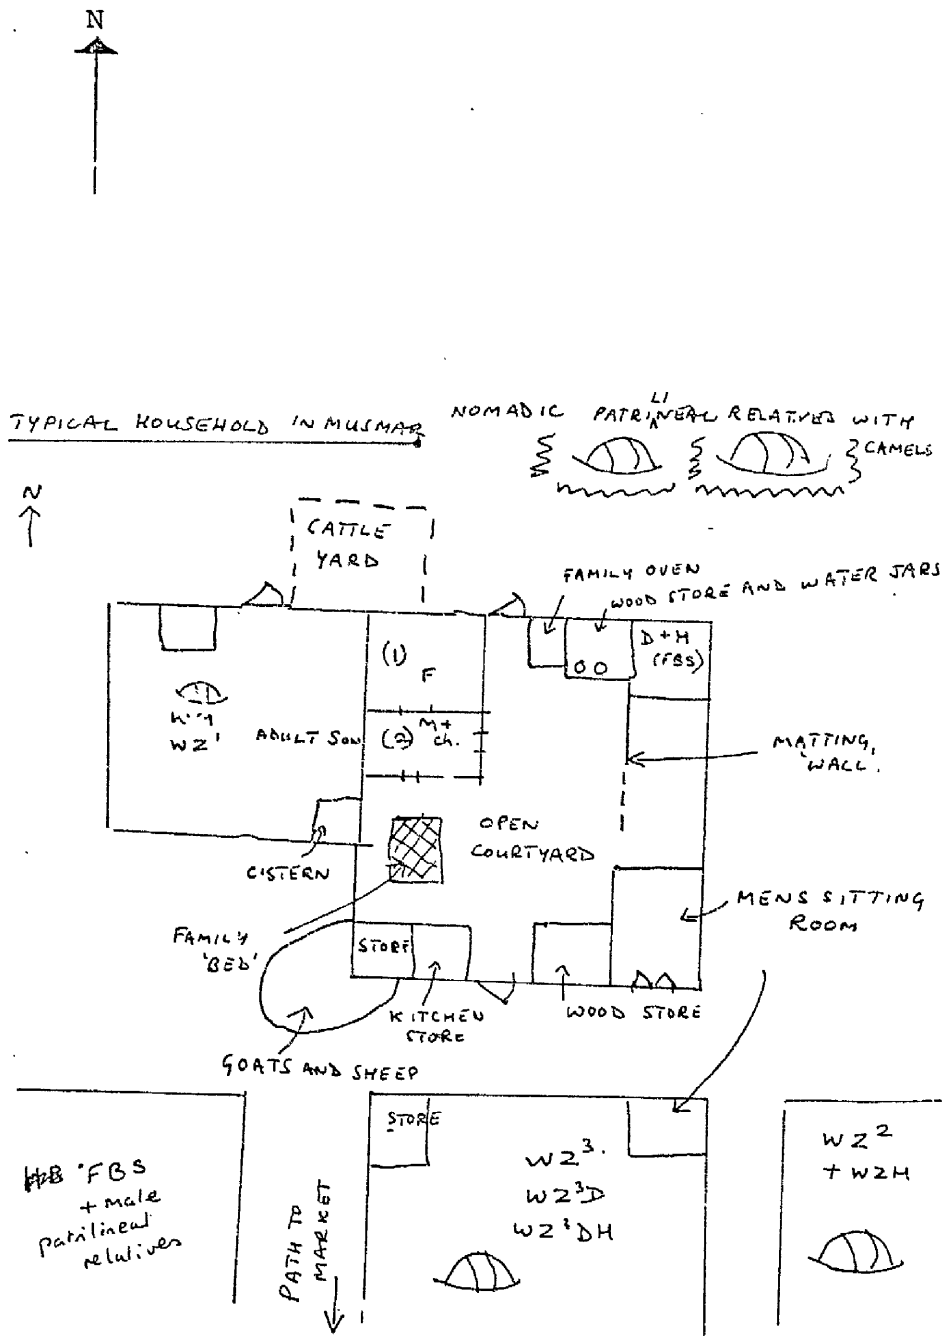 N
TYPICAL HOUSEHOLD IN MUSMAR
NOMADIC PATRILINEAL RELATIVES WITH
CAMELS
N
CATTLE
YARD
FAMILY OVEN
WOOD STORE AND WATER JARS
D+H
(FBS)
(1)
F
WZ'
ADULT SON
(2)
M+
ch.
MATTING,
WALL.
OPEN
COURTYARD
CISTERN
MENS SITTING
ROOM
FAMILY
'BED'
STORE
KITCHEN
STORE
WOOD STORE
GOATS AND SHEEP
STORE
WZ³.
WZ³D
WZ³DH
WZ²
+ WZH
FBS
+ male
patrilineal
relatives
PATH TO
MARKET